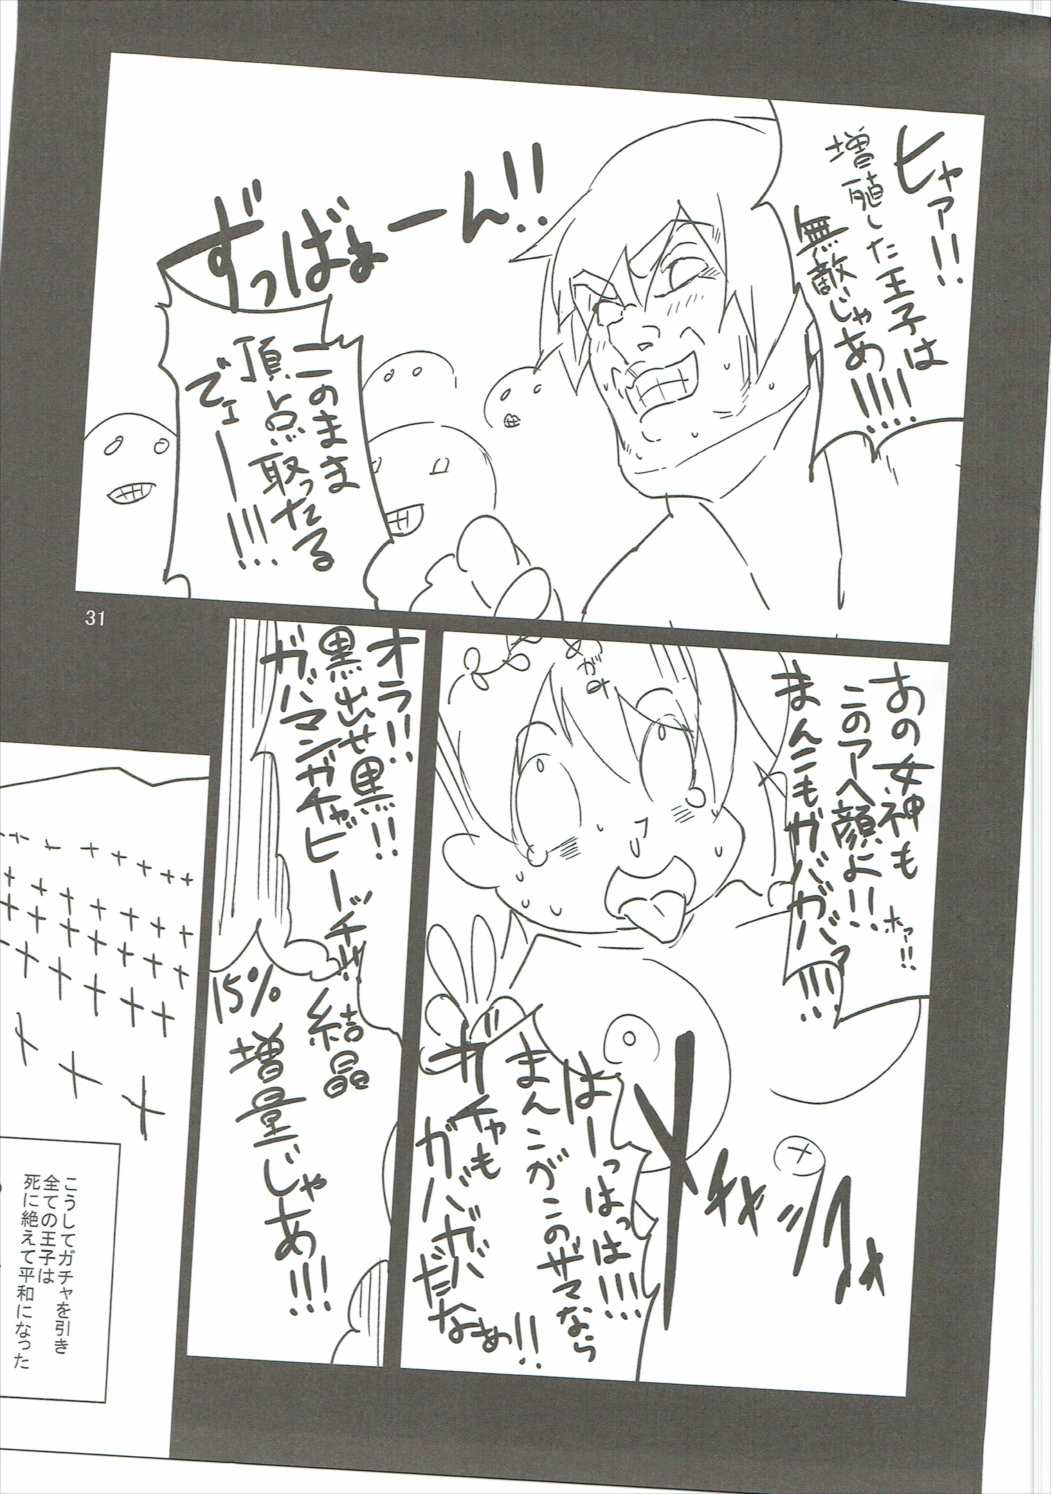 ヒャァ!!
増殖した王子は
無敵じゃあ!!!!
ずっばぁーん!!
このまま
頂点取ったる
でェー!!!
31
あの女神も
このアヘ顔よ!!
まんこもガバガバァ!!!!
めがみ
はーっはっは!!!!
まんこがこのザマなら
ガチャも
ガバガバ
だなぁ!!
オラ!!
黒出せ黒!!
ガバマンガチャビーッチ!!
結晶
15%
増量じゃあ!!!
こうしてガチャを引き
全ての王子は
死に絶えて平和になった